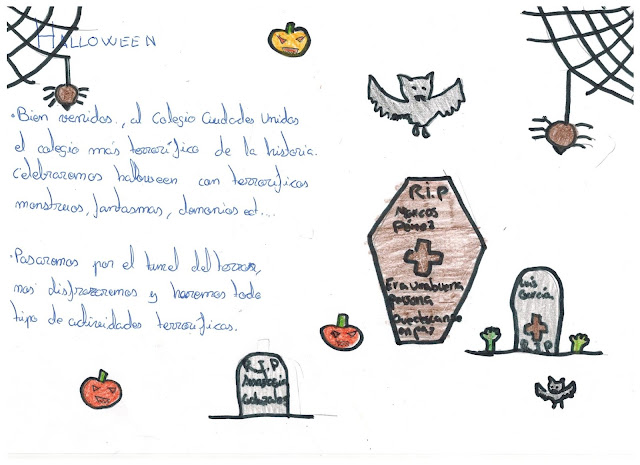 HALLOWEEN
• Bien venidos, al colegio Ciudades Unidas
el colegio más terrorífico de la historia.
Celebraremos halloween con terroríficos
monstruos, fantasmas, demonios ect...
• Pasaremos por el tunel del terror,
nos disfrazaremos y haremos todo
tipo de actividades terroríficas.
R.I.P
Marcos
Pérez
Era una buena
persona
Que descanse
en paz
Luis
García
R.I.P
Anastasia
Gonzalez